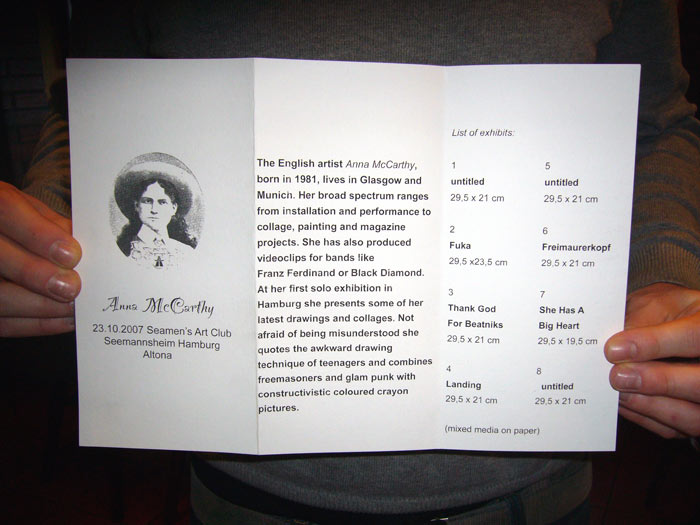 Anna McCarthy
23.10.2007 Seamen's Art Club
Seemannsheim Hamburg
Altona
The English artist Anna McCarthy,
born in 1981, lives in Glasgow and
Munich. Her broad spectrum ranges
from installation and performance to
collage, painting and magazine
projects. She has also produced
videoclips for bands like
Franz Ferdinand or Black Diamond.
At her first solo exhibition in
Hamburg she presents some of her
latest drawings and collages. Not
afraid of being misunderstood she
quotes the awkward drawing
technique of teenagers and combines
freemasoners and glam punk with
constructivistic coloured crayon
pictures.
List of exhibits:
1
untitled
29,5 x 21 cm
2
Fuka
29,5 x23,5 cm
3
Thank God
For Beatniks
29,5 x 21 cm
4
Landing
29,5 x 21 cm
5
untitled
29,5 x 21 cm
6
Freimaurerkopf
29,5 x 21 cm
7
She Has A
Big Heart
29,5 x 19,5 cm
8
untitled
29,5 x 21 cm
(mixed media on paper)